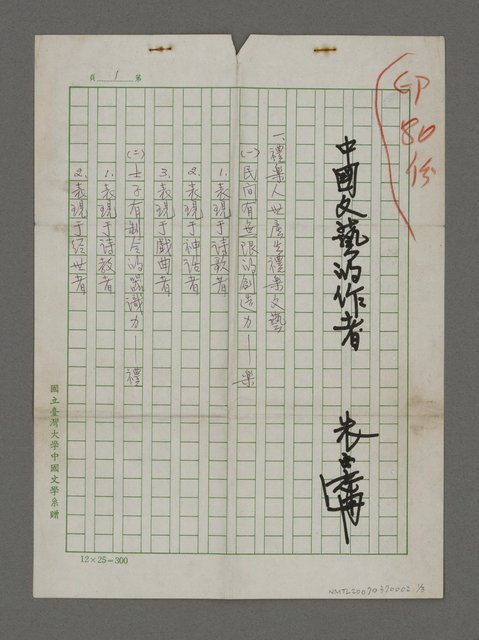 印80份
中國文藝的作者
朱西甯
一、禮樂人世產生禮樂文藝
(一)民間有無限的創造力——樂
1.表現于詩歌者
2.表現于神話者
3.表現于戲曲者
(二)士子有制令的器識力——禮
1.表現于詩教者
2.表現于經世者
第 1 頁
國立臺灣大學中國文學系贈
12×25=300
NMTL20070370002 1/8